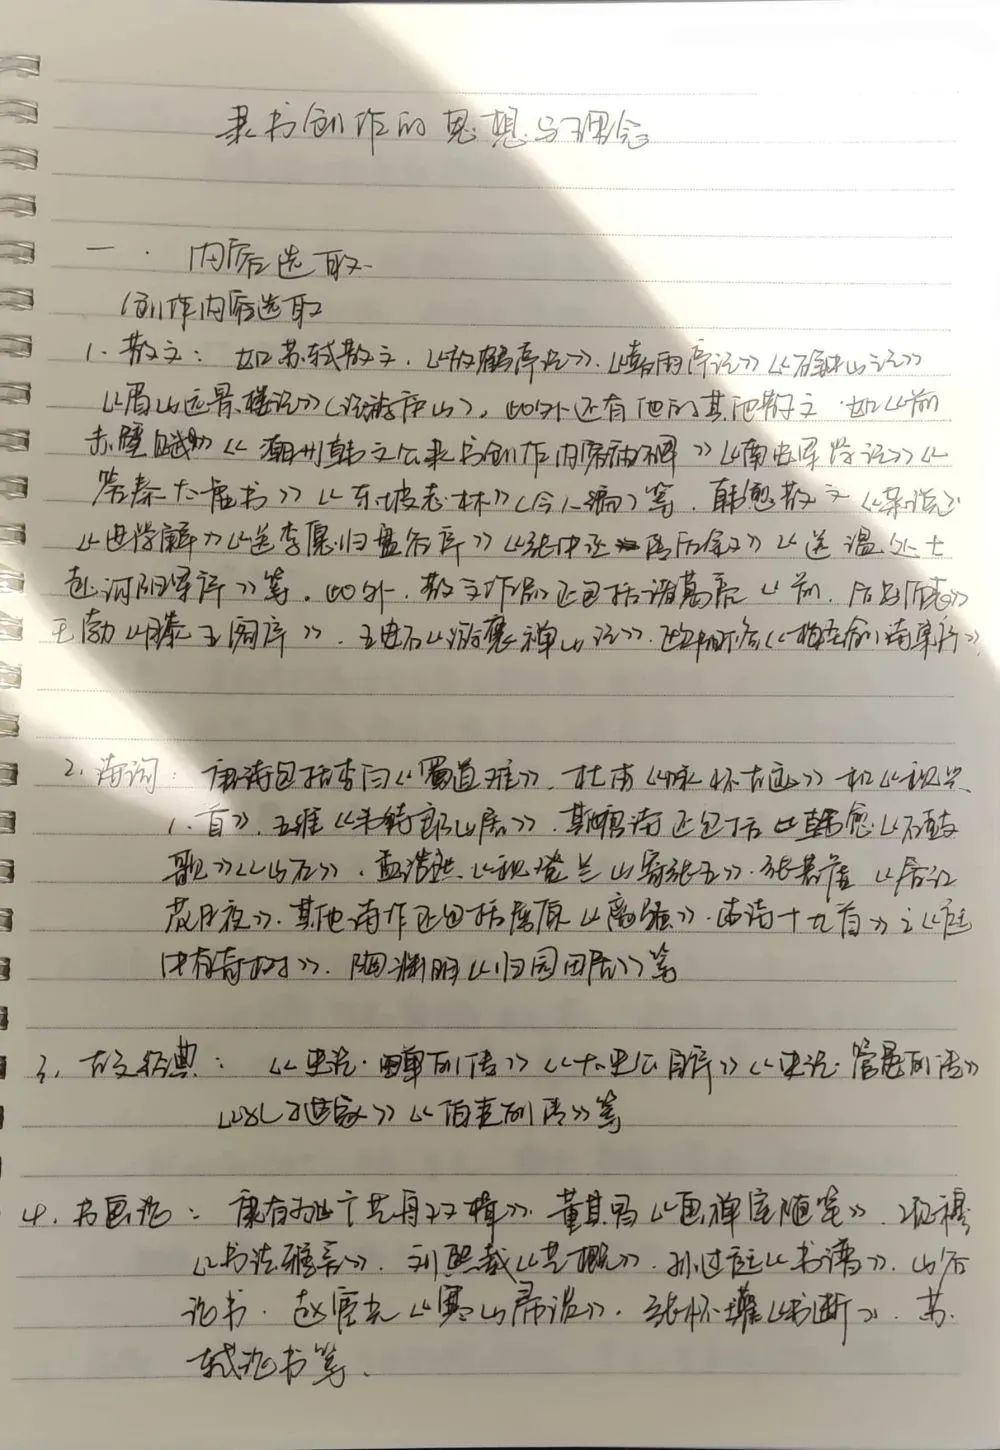 隶书创作的思想与理念
一. 内容选取
(创作内容选取
1. 散文: 如苏轼散文.《放鹤亭记》.《喜雨亭记》《石钟山记》
《眉山远景楼记》( ).此外还有他的其他散文 如《前
赤壁赋》《潮州韩文公隶书创作内容庙碑》《南安军学记》《
答秦太虚书》《东坡志林》(今人编)等.韩愈散文《
《进学解》《送李愿归盘谷序》《张中丞传后叙》《送温处士
赴河阳军序》等.此外.散文作品还包括诸葛亮《前.后出师表》
王勃《滕王阁序》.王安石《游褒禅山记》.欧阳修《梅圣俞诗集序》
2. 诗词: 唐诗包括李白《蜀道难》.杜甫《咏怀古迹》和《秋兴
八首》.王维《 山居》.其他唐诗还包括 韩愈《石鼓
歌》《山石》.孟浩然《秋登兰山寄张五》.张若虚《春江
花月夜》.其他诗作还包括屈原《离骚》.《古诗十九首》之《庭
中有奇树》.陶渊明《归园田居》等
3. 古文经典: 《史记·田单列传》《太史公自序》《史记·管晏列传》
《 世家》《伯夷列传》等
4. 书画论: 康有为《广艺舟双楫》.董其昌《画禅室随笔》.项穆
《书法雅言》.刘熙载《艺概》.孙过庭《书谱》.山谷
论书.赵宧光《寒山帚谈》.张怀瓘《书断》.苏
轼论书等.